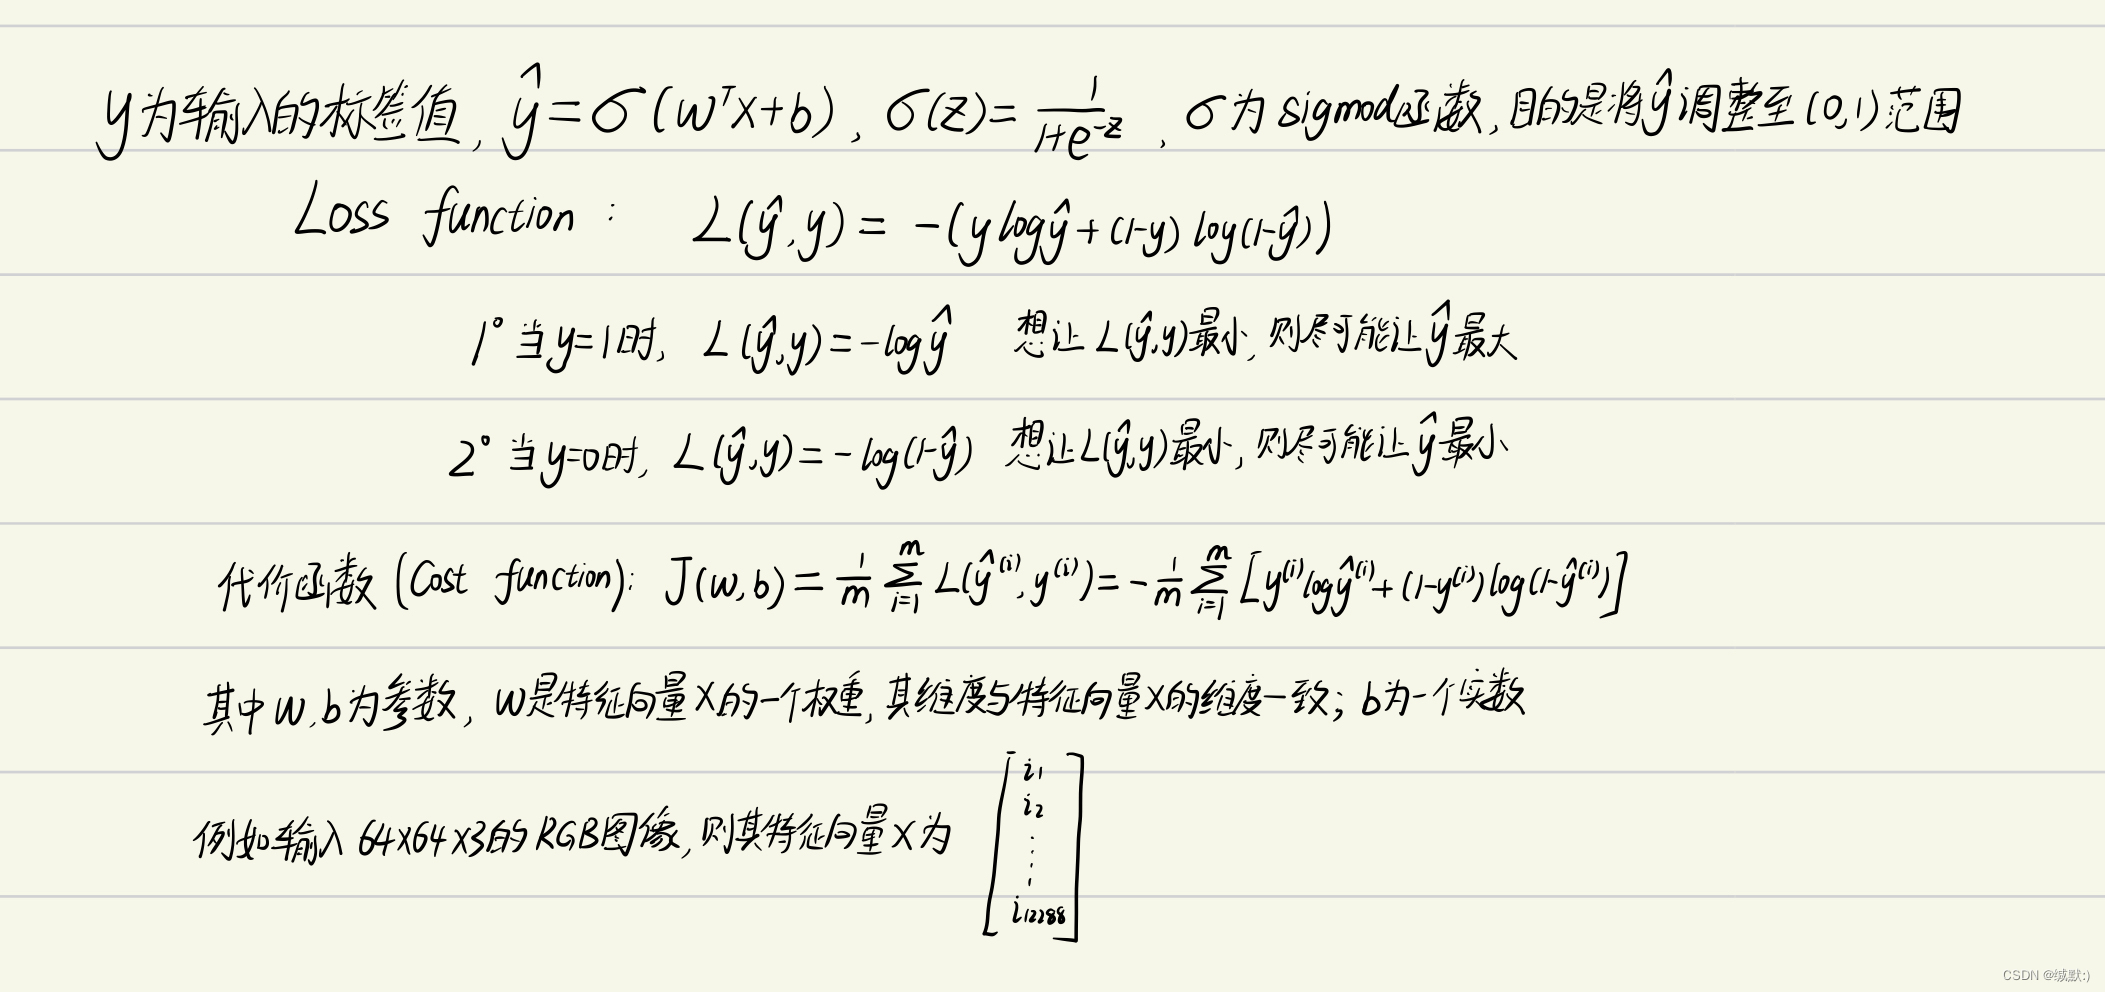 y为输入的标签值, ŷ=σ(wᵀx+b), σ(z)=1/(1+e^(-z)), σ为sigmod函数,目的是将ŷ调整至(0,1)范围
Loss function: L(ŷ,y)= -(ylogŷ+(1-y)log(1-ŷ))
1° 当y=1时, L(ŷ,y)=-logŷ 想让L(ŷ,y)最小,则尽可能让ŷ最大
2° 当y=0时, L(ŷ,y)=-log(1-ŷ) 想让L(ŷ,y)最小,则尽可能让ŷ最小
代价函数(Cost function): J(w,b)=1/m ∑_{i=1}^{m} L(ŷ^(i),y^(i))=-1/m ∑_{i=1}^{m} [y^(i)logŷ^(i)+(1-y^(i))log(1-ŷ^(i))]
其中w,b为参数, w是特征向量x的一个权重,其维度与特征向量x的维度一致; b为一个实数
例如输入64x64x3的RGB图像,则其特征向量x为 [i₁ i₂ ⋮ i₁₂₂₈₈]
CSDN @缄默:)